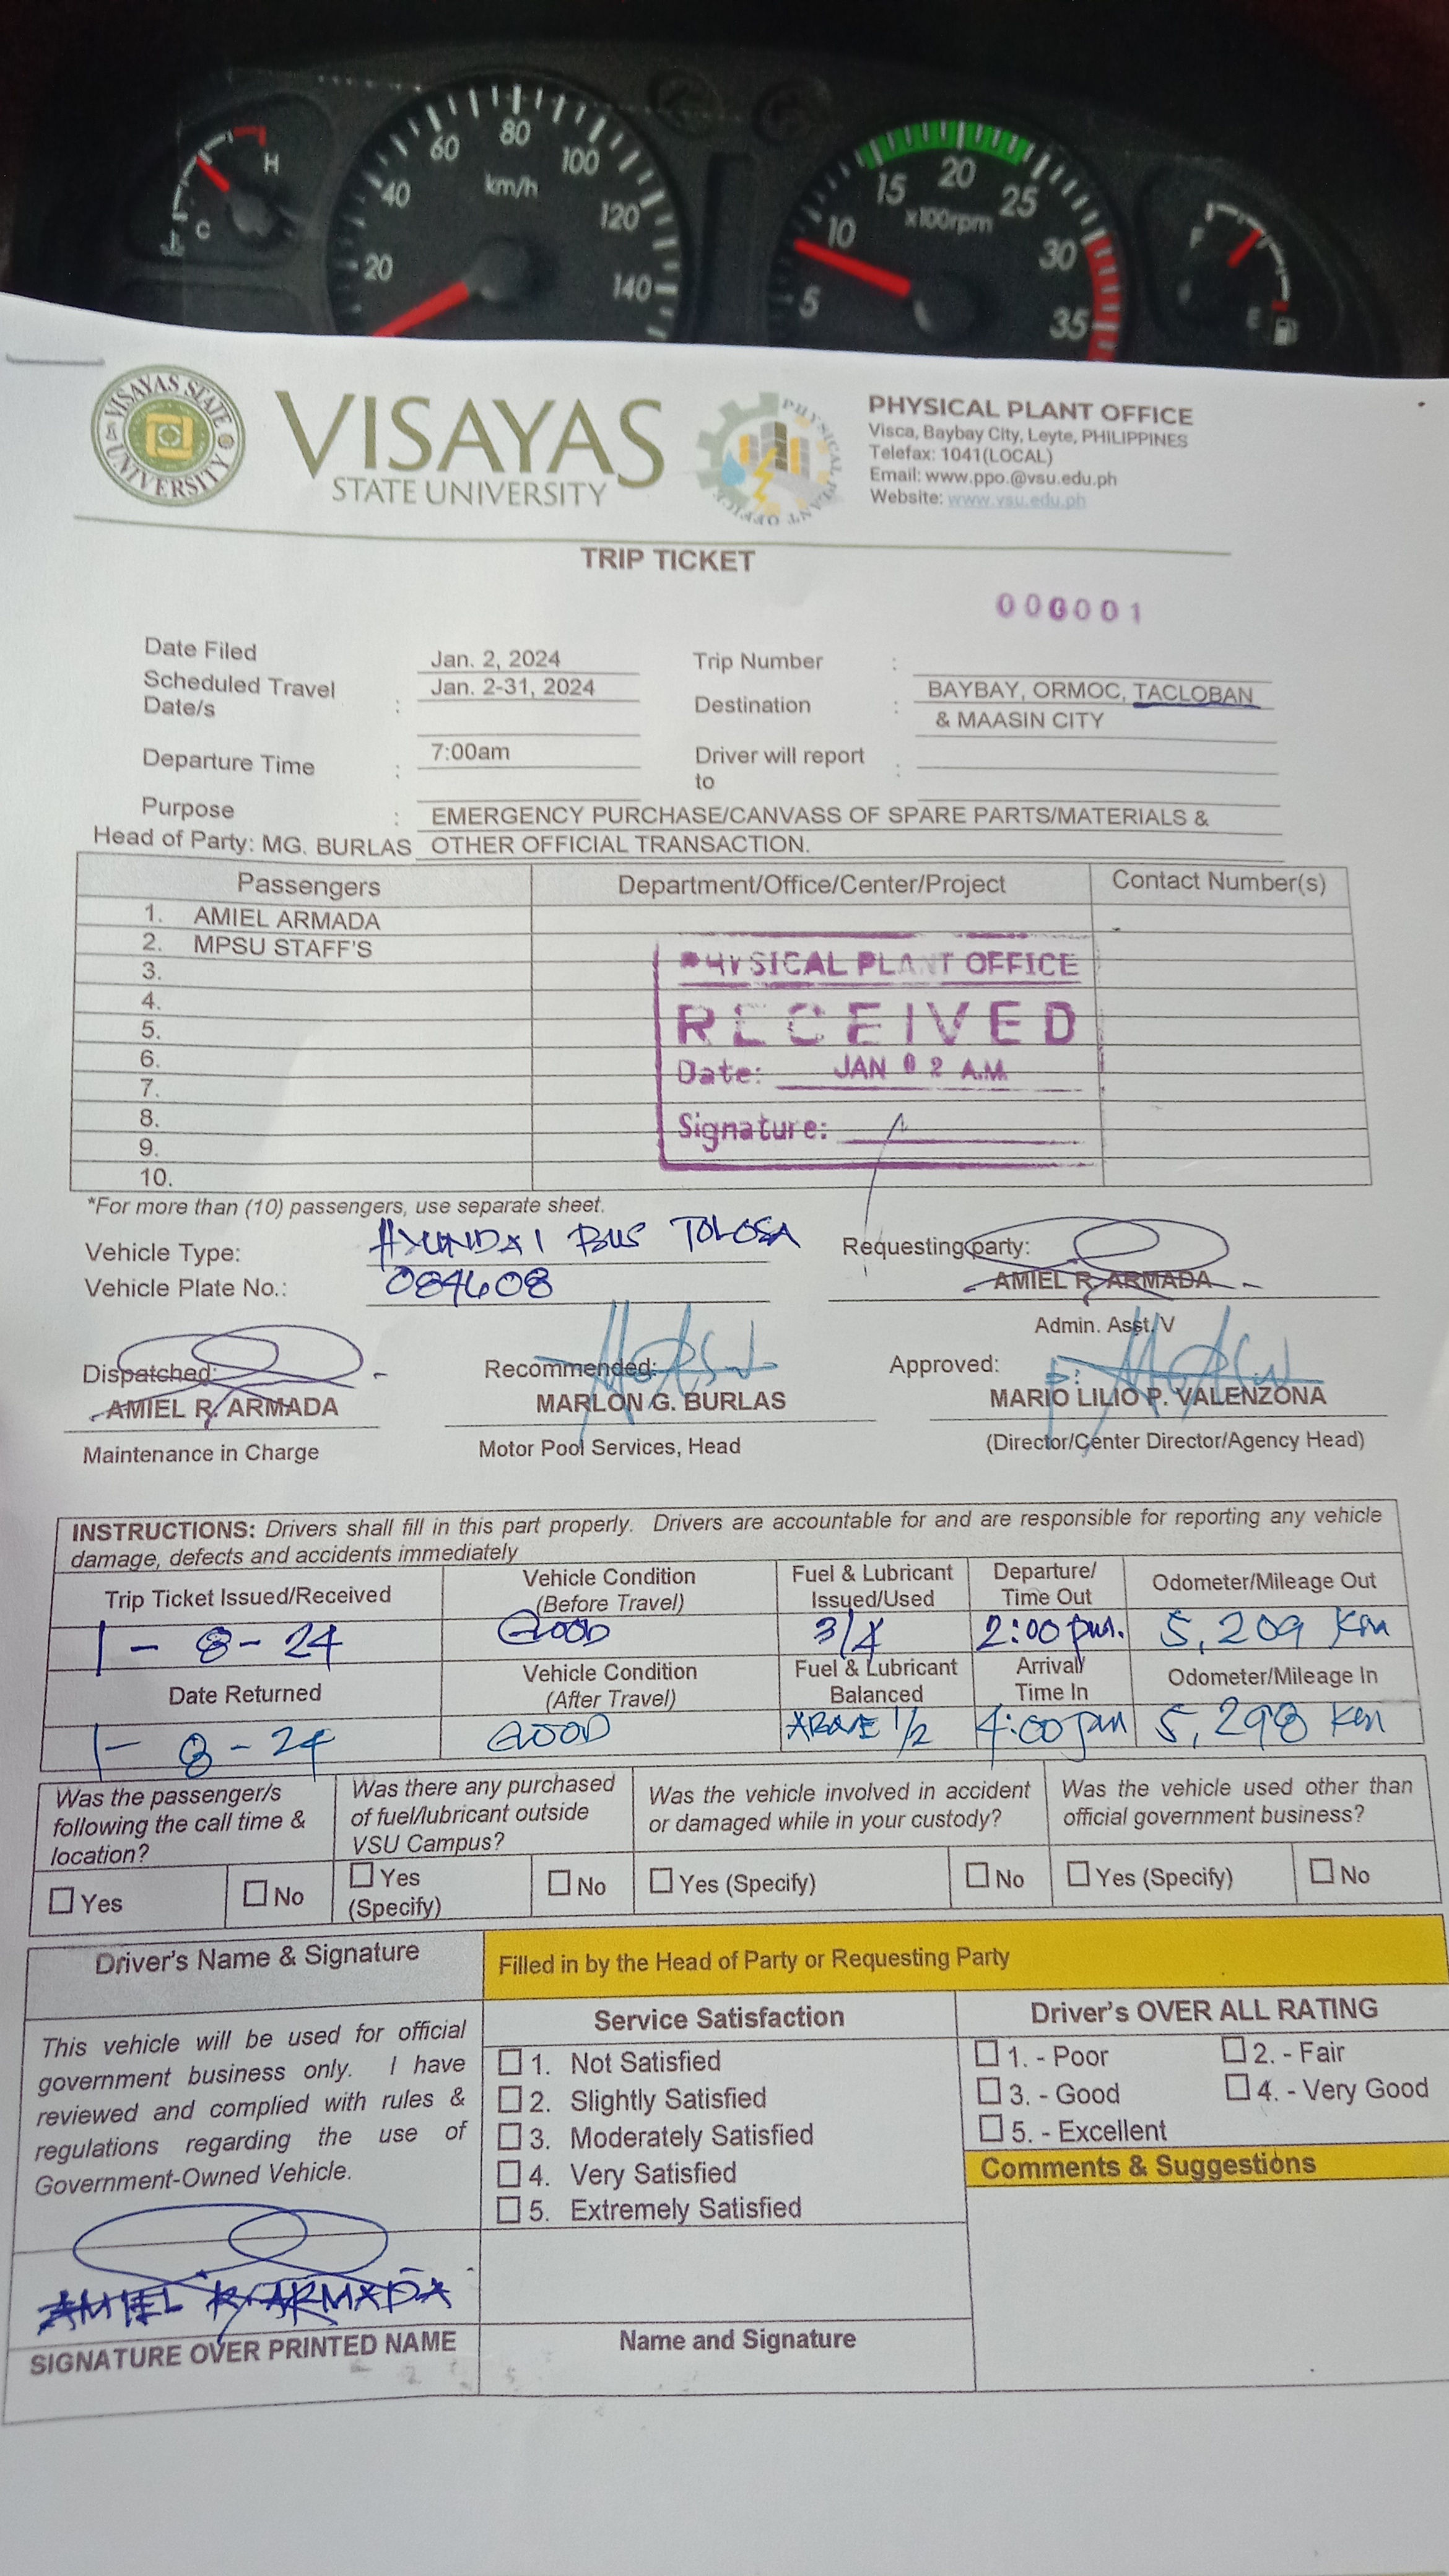 H
C
20
40
60
80
100
120
140
km/h
5
10
15
20
25
30
35
x100rpm
F
E
VISAYAS STATE UNIVERSITY
VISAYAS
STATE UNIVERSITY
PHYSICAL PLANT OFFICE
PHYSICAL PLANT OFFICE
Visca, Baybay City, Leyte, PHILIPPINES
Telefax: 1041(LOCAL)
Email: www.ppo.@vsu.edu.ph
Website: www.vsu.edu.ph
TRIP TICKET
000001
Date Filed Jan. 2, 2024 Trip Number :
Scheduled Travel Date/s : Jan. 2-31, 2024 Destination : BAYBAY, ORMOC, TACLOBAN
& MAASIN CITY
Departure Time : 7:00am Driver will report to :
Purpose : EMERGENCY PURCHASE/CANVASS OF SPARE PARTS/MATERIALS &
Head of Party: MG. BURLAS OTHER OFFICIAL TRANSACTION.
Passengers Department/Office/Center/Project Contact Number(s)
1. AMIEL ARMADA
2. MPSU STAFF'S
3.
4.
5.
6.
7.
8.
9.
10.
PHYSICAL PLANT OFFICE
RECEIVED
Date: JAN 02 A.M.
Signature:
*For more than (10) passengers, use separate sheet.
Vehicle Type: HYUNDAI BUS TOLOSA
Vehicle Plate No.: 084608
Requesting party:
AMIEL R. ARMADA
Admin. Asst. V
Dispatched: Recommended: Approved:
AMIEL R. ARMADA MARLON G. BURLAS MARIO LILIO P. VALENZONA
Maintenance in Charge Motor Pool Services, Head (Director/Center Director/Agency Head)
INSTRUCTIONS: Drivers shall fill in this part properly. Drivers are accountable for and are responsible for reporting any vehicle
damage, defects and accidents immediately
Trip Ticket Issued/Received Vehicle Condition (Before Travel) Fuel & Lubricant Issued/Used Departure/ Time Out Odometer/Mileage Out
1-8-24 GOOD 3/4 2:00 pm. 5,209 Km
Date Returned Vehicle Condition (After Travel) Fuel & Lubricant Balanced Arrival/ Time In Odometer/Mileage In
1-8-24 GOOD ABOVE 1/2 4:00 pm 5,298 Km
Was the passenger/s following the call time & location?
Yes No
Was there any purchased of fuel/lubricant outside VSU Campus?
Yes (Specify) No
Was the vehicle involved in accident or damaged while in your custody?
Yes (Specify) No
Was the vehicle used other than official government business?
Yes (Specify) No
Driver's Name & Signature
Filled in by the Head of Party or Requesting Party
This vehicle will be used for official
government business only. I have
reviewed and complied with rules &
regulations regarding the use of
Government-Owned Vehicle.
AMIEL R. ARMADA
SIGNATURE OVER PRINTED NAME
Service Satisfaction
1. Not Satisfied
2. Slightly Satisfied
3. Moderately Satisfied
4. Very Satisfied
5. Extremely Satisfied
Name and Signature
Driver's OVER ALL RATING
1. - Poor 2. - Fair
3. - Good 4. - Very Good
5. - Excellent
Comments & Suggestions